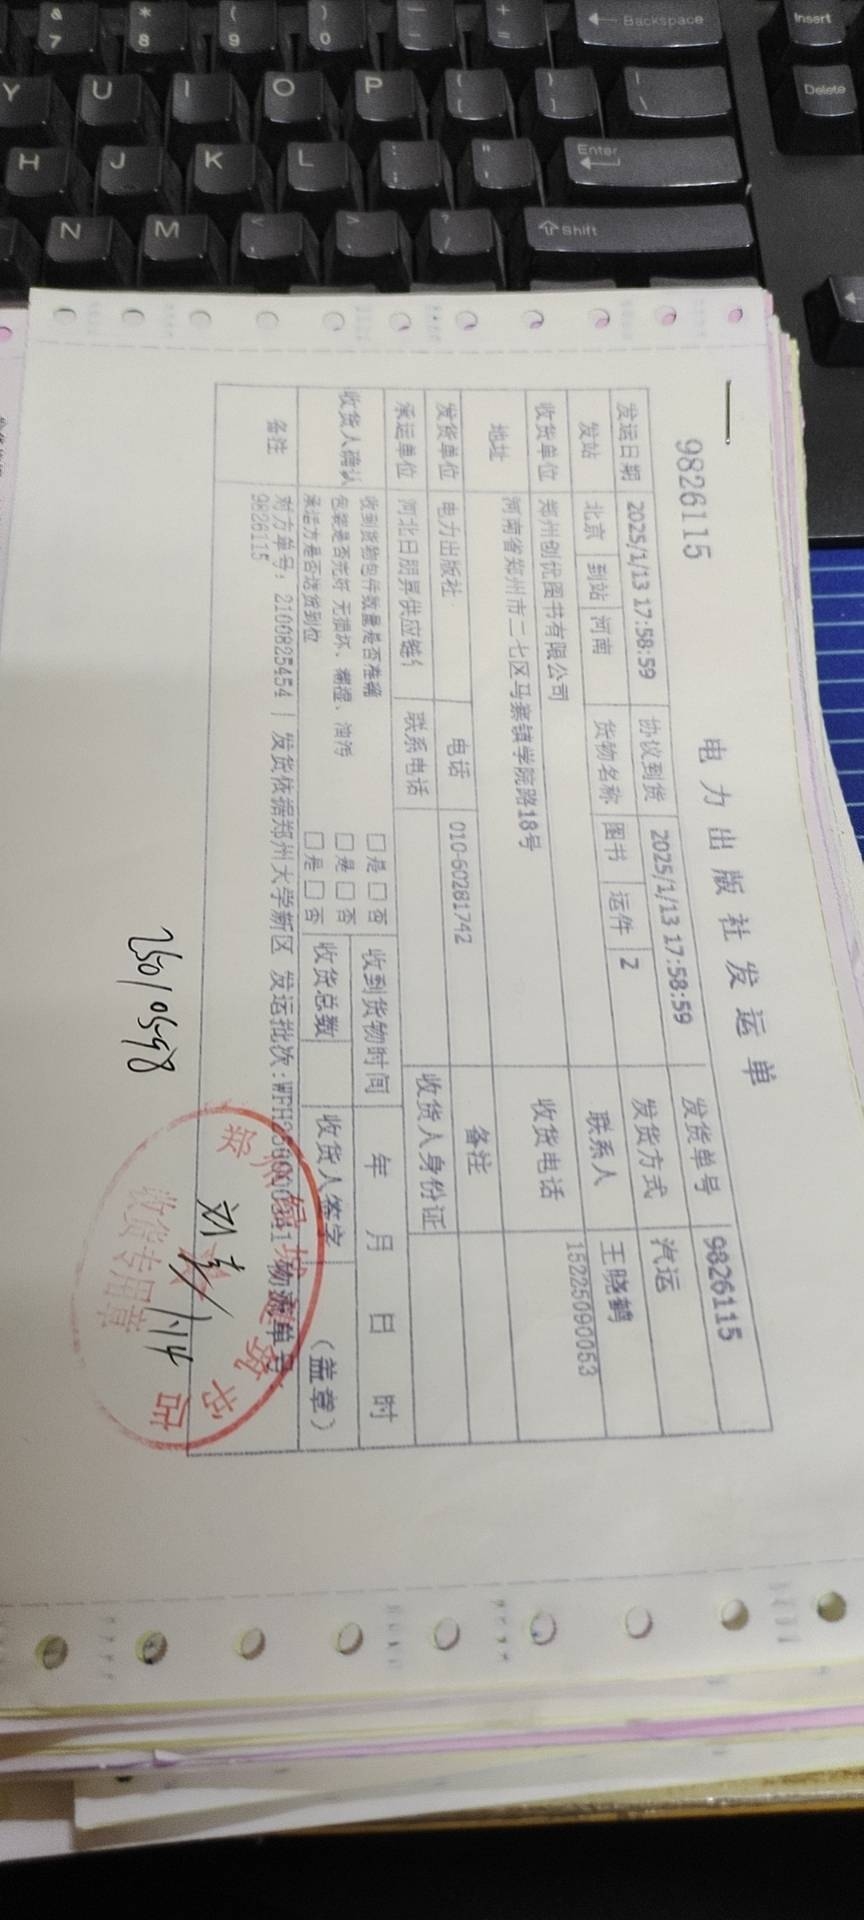 9826115
电力出版社发运单
发运日期 2025/1/13 17:58:59 协议到货 2025/1/13 17:58:59 发货单号 9826115
发站 北京 到站 河南 货物名称 图书 运件 2 发货方式 汽运
收货单位 郑州创优图书有限公司 联系人 王晓鹤
地址 河南省郑州市二七区马寨镇学院路18号 收货电话 15225090053
发货单位 电力出版社 电话 010-60281742 备注
承运单位 河北日朋昇供应链 联系电话 收货人身份证
收货人确认 收到货物包件数量是否准确 □是□否 收到货物时间 年 月 日 时
包装是否完好 无损坏、潮湿、油污 □是□否 收货总数 收货人签字 (盖章)
承运方是否送货到位 □是□否
备注 对方单号: 2100825454 | 发货依据郑州大学新区 发运批次:WFH 物流单号
9826115
25010598
刘 1.14
郑州 城建筑书店
收货专用章
& 7
* 8
( 9
) 0
— -
+ =
Backspace
Insert
Y U I O P { [ } ] | \
Delete
H J K L : ; " ' Enter
N M < , > . ? / Shift